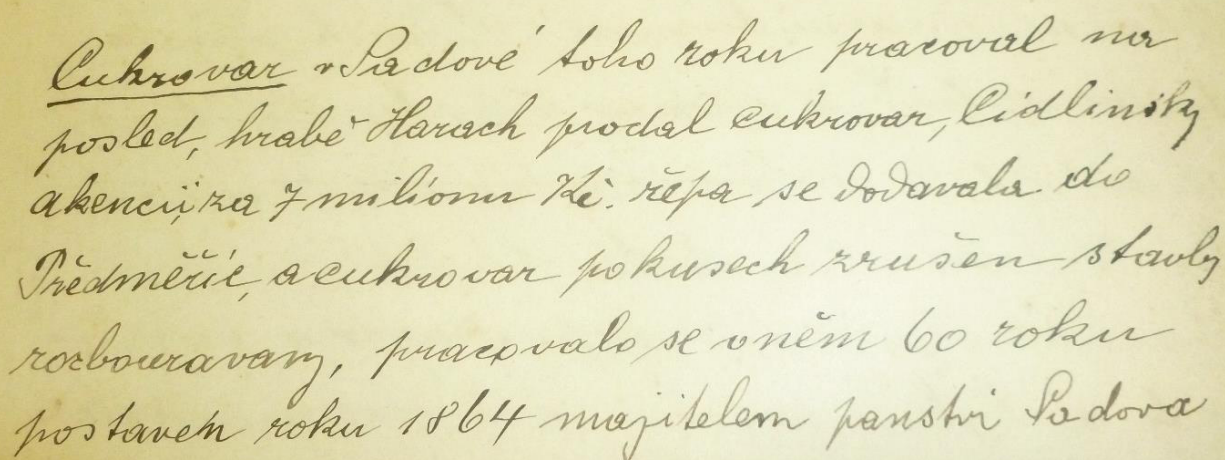 Cukrovar v Sadové toho roku pracoval na
posled, hrabě Harach prodal cukrovar, Cidlinský
akencii, za 7 milionu Kč. řepa se dodavala do
Předměřic, a cukrovar pokusech zrušen stavby
rozbouravany, pracovalo se v něm 60 roku
postaven roku 1864 majitelem panstvi Sadova